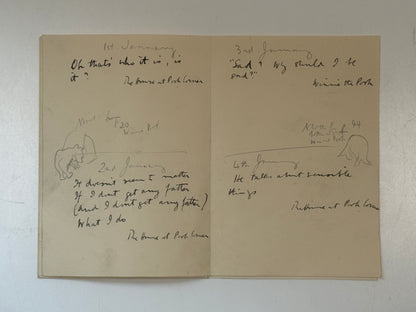 1st January
Oh that's who it is, is
it"
The House at Pooh Corner
20
2nd January
It doesn't seem to matter
If I don't get any fatter
(and I don't get any fatter)
What I do
The House at Pooh Corner
3rd January
"Sad? Why should I be
sad?"
Winnie the Pooh
44
4th January
He talks about sensible
things
The House at Pooh Corner